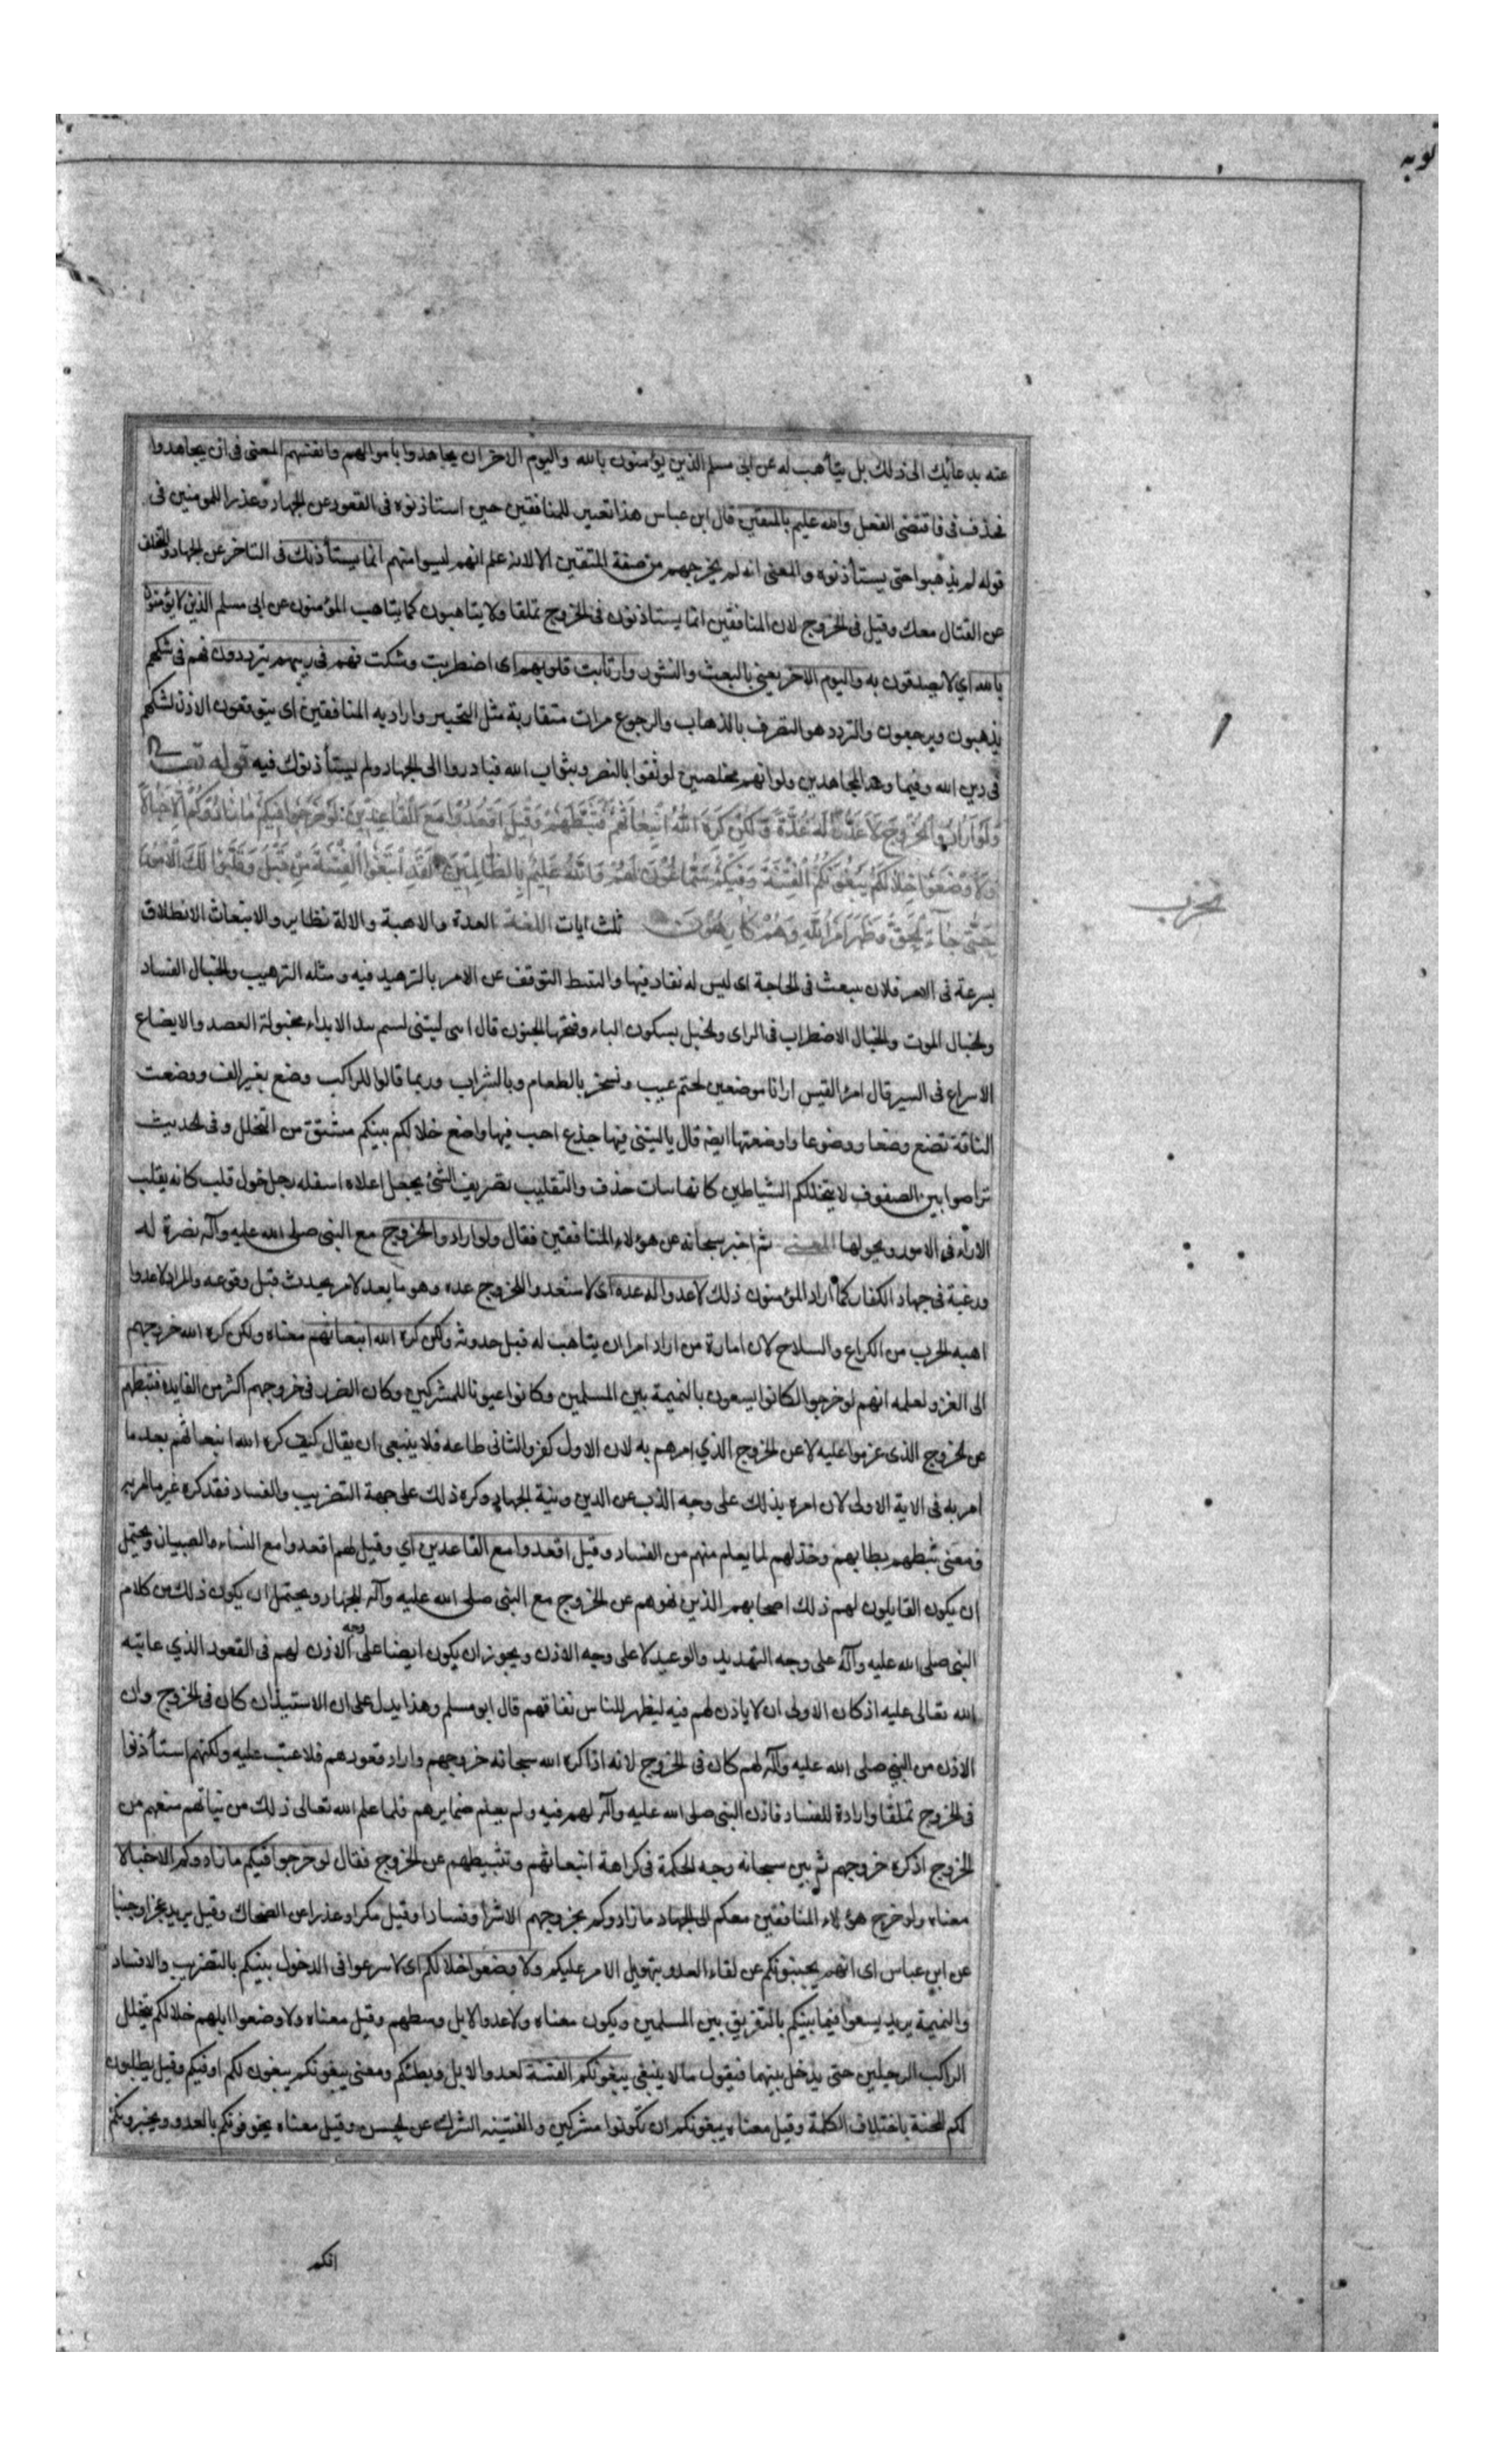 توبه
عنه بدعائك الى ذلك بل يتأهب له عن ابى مسلم الذين يؤمنون بالله واليوم الاخر ان يجاهدوا باموالهم وانفسهم المعنى فى ان يجاهدوا
فحذف فى فاقتضى الفعل والله عليم بالمتقين قال ابن عباس هذا تعيير للمنافقين حين استاذنوه فى القعود عن الجهاد وعذر للمومنين فى
قوله لم يذهبوا حتى يستأذنوه والمعنى انه لم يخرجهم من صفة المتقين الا لانه علم انهم ليسوا منهم انما يستأذنك فى التاخر عن الجهاد والتخلف
عن القتال معك وقيل فى الخروج لان المنافقين انما يستاذنون فى الخروج تملقا ولا يتاهبون كما يتاهب المؤمنون عن ابى مسلم الذين لا يؤمنون
بالله اي لا يصدقون به واليوم الاخر يعنى بالبعث والنشور وارتابت قلوبهم اى اضطربت وشكت فهم فى ريبهم يترددون فهم فى شكهم
يذهبون ويرجعون والتردد هو التصرف بالذهاب والرجوع مرات متقاربة مثل التحير واراد به المنافقين اى يتوقعون الاذن لشكهم
فى دين الله وفيما وعد المجاهدين ولو انهم مخلصين لوثقوا بالنصر وبثواب الله فبادروا الى الجهاد ولم يستأذنوك فيه قوله تعـ
وَلَوْ أَرَادُوا الْخُرُوجَ لَأَعَدُّوا لَهُ عُدَّةً وَلَكِنْ كَرِهَ اللَّهُ انْبِعَاثَهُمْ فَثَبَّطَهُمْ وَقِيلَ اقْعُدُوا مَعَ الْقَاعِدِينَ لَوْ خَرَجُوا فِيكُمْ مَا زَادُوكُمْ إِلَّا خَبَالًا
وَلَأَوْضَعُوا خِلَالَكُمْ يَبْغُونَكُمُ الْفِتْنَةَ وَفِيكُمْ سَمَّاعُونَ لَهُمْ وَاللَّهُ عَلِيمٌ بِالظَّالِمِينَ لَقَدِ ابْتَغَوُا الْفِتْنَةَ مِنْ قَبْلُ وَقَلَّبُوا لَكَ الْأُمُورَ
حَتَّى جَاءَ الْحَقُّ وَظَهَرَ أَمْرُ اللَّهِ وَهُمْ كَارِهُونَ ثلث ايات اللغة العدة والاهبة والالة نظاير والانبعاث الانطلاق
بسرعة فى الامر فلان ينبعث فى الحاجة اى ليس له نفاد فيها والتثبط التوقف عن الامر بالتزهيد فيه ومثله الترهيب والخبال الفساد
والخبال الموت والخبال الاضطراب فى الراى والخبل بسكون الباء وفتحها الجنون قال
الاسراع فى السير قال امرؤ القيس ارانا موضعين لحتم غيب ونسحر بالطعام وبالشراب وربما قالوا للراكب وضع بغير الف ووضعت
الناقة تضع وضعا ووضوعا واوضعتها ايضا قال يا ليتنى فيها جذع اخب فيها واضع خلالكم بينكم مشتق من التخلل وفى الحديث
تراصوا بين الصفوف لا يتخللكم الشياطين كانها بنات حذف والتقليب تصريف الشئ بجعل اعلاه اسفله رجل حول قلب كانه يقلب
الاراء فى الامور ويحولها المعنى ثم اخبر سبحانه عن هؤلاء المنافقين فقال ولو ارادوا الخروج مع النبى صلى الله عليه وآله نصرة له
ورغبة فى جهاد الكفار كما اراد المؤمنون ذلك لاعدوا له عدة اى لاستعدوا للخروج عدة وهو ما يعد لامر يحدث قبل وقوعه والمراد لاعدوا
اهبة الحرب من الكراع والسلاح لان امارة من اراد امرا ان يتاهب له قبل حدوثه ولكن كره الله انبعاثهم معناه ولكن كره الله خروجهم
الى الغزو لعلمه انهم لو خرجوا لكانوا يسعون بالنميمة بين المسلمين وكانوا عيونا للمشركين وكان الضرر فى خروجهم اكثر من الفايدة فثبطهم
عن الخروج الذى عزموا عليه لا عن الخروج الذي امرهم به لان الاول كفر والثانى طاعة فلا ينبغى ان يقال كيف كره الله انبعاثهم بعد ما
امر به فى الاية الاولى لان امره بذلك على وجه الذب عن الدين ونية الجهاد وكره ذلك على جهة التضريب والفساد فقد كره غير ما امر به
ومعنى ثبطهم بطا بهم وخذلهم لما يعلم منهم من الفساد وقيل اقعدوا مع القاعدين اي وقيل لهم اقعدوا مع النساء والصبيان ويحتمل
ان يكون القايلون لهم ذلك اصحابهم الذين نهوهم عن الخروج مع النبى صلى الله عليه وآله للجهاد ويحتمل ان يكون ذلك من كلام
النبى صلى الله عليه وآله على وجه التهديد والوعيد لا على وجه الاذن ويجوز ان يكون ايضا على وجه الاذن لهم فى القعود الذي عاتبه
الله تعالى عليه اذ كان الاولى ان لا ياذن لهم فيه ليظهر للناس نفاقهم قال ابو مسلم وهذا يدل على ان الاستيذان كان فى الخروج وان
الاذن من النبي صلى الله عليه وآله لهم كان فى الخروج لانه اذا كره الله سبحانه خروجهم واراد قعودهم فلا عتب عليه ولكنهم استأذنوا
فى الخروج تملقا وارادة للفساد فاذن النبى صلى الله عليه وآله لهم فيه ولم يعلم ضمايرهم فلما علم الله تعالى ذلك من نياتهم منعهم من
الخروج اذ كره خروجهم ثم بين سبحانه وجه الحكمة فى كراهة انبعاثهم وتثبيطهم عن الخروج فقال لو خرجوا فيكم ما زادوكم الا خبالا
معناه ولو خرج هؤلاء المنافقين معكم الى الجهاد ما زادوكم بخروجهم الا شرا وفسادا وقيل مكرا وغدرا عن الضحاك وقيل يريد عجزا وجبنا
عن ابن عباس اى انهم يجبنونكم عن لقاء العدو بتهويل الامر عليكم ولاوضعوا خلالكم اى لاسرعوا فى الدخول بينكم بالتضريب والافساد
والنميمة يريد يسعوا فيما بينكم بالتفريق بين المسلمين ويكون معناه ولاعدوا الابل وسطهم وقيل معناه ولاوضعوا ابلهم خلالكم يتخلل
الراكب الرجلين حتى يدخل بينهما فيقول ما لا ينبغى يبغونكم الفتنة لعدوا الابل وبطئكم ومعنى يبغونكم يبغون لكم او فيكم وقيل يطلبون
لكم المحنة باختلاف الكلمة وقيل معناه يبغونكم ان تكونوا مشركين والفتنة الشرك عن الحسن وقيل معناه يخوفونكم بالعدو ويخبرونكم
انكم